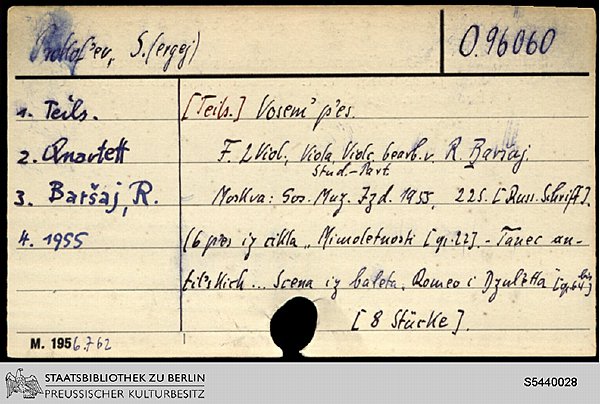 Prokof'ev, S.(ergej)
O.96060
1. Teils.
[Teils.] Vosem' p'es.
2. Quartett
F. 2 Viol., Viola, Violc. bearb. v. R. Baršaj.
Stud.-Part.
3. Baršaj, R.
Moskva: Gos. Muz. Izd. 1955, 22 S. [Russ. Schrift].
4. 1955
(6 p'es iz cikla „Mimoletnosti [op. 22]. - Tanec an-
til'skich ... Scena iz baleta „Romeo i Džul'etta"
[8 Stücke].
M. 1956.762
STAATSBIBLIOTHEK ZU BERLIN
PREUSSISCHER KULTURBESITZ
S5440028